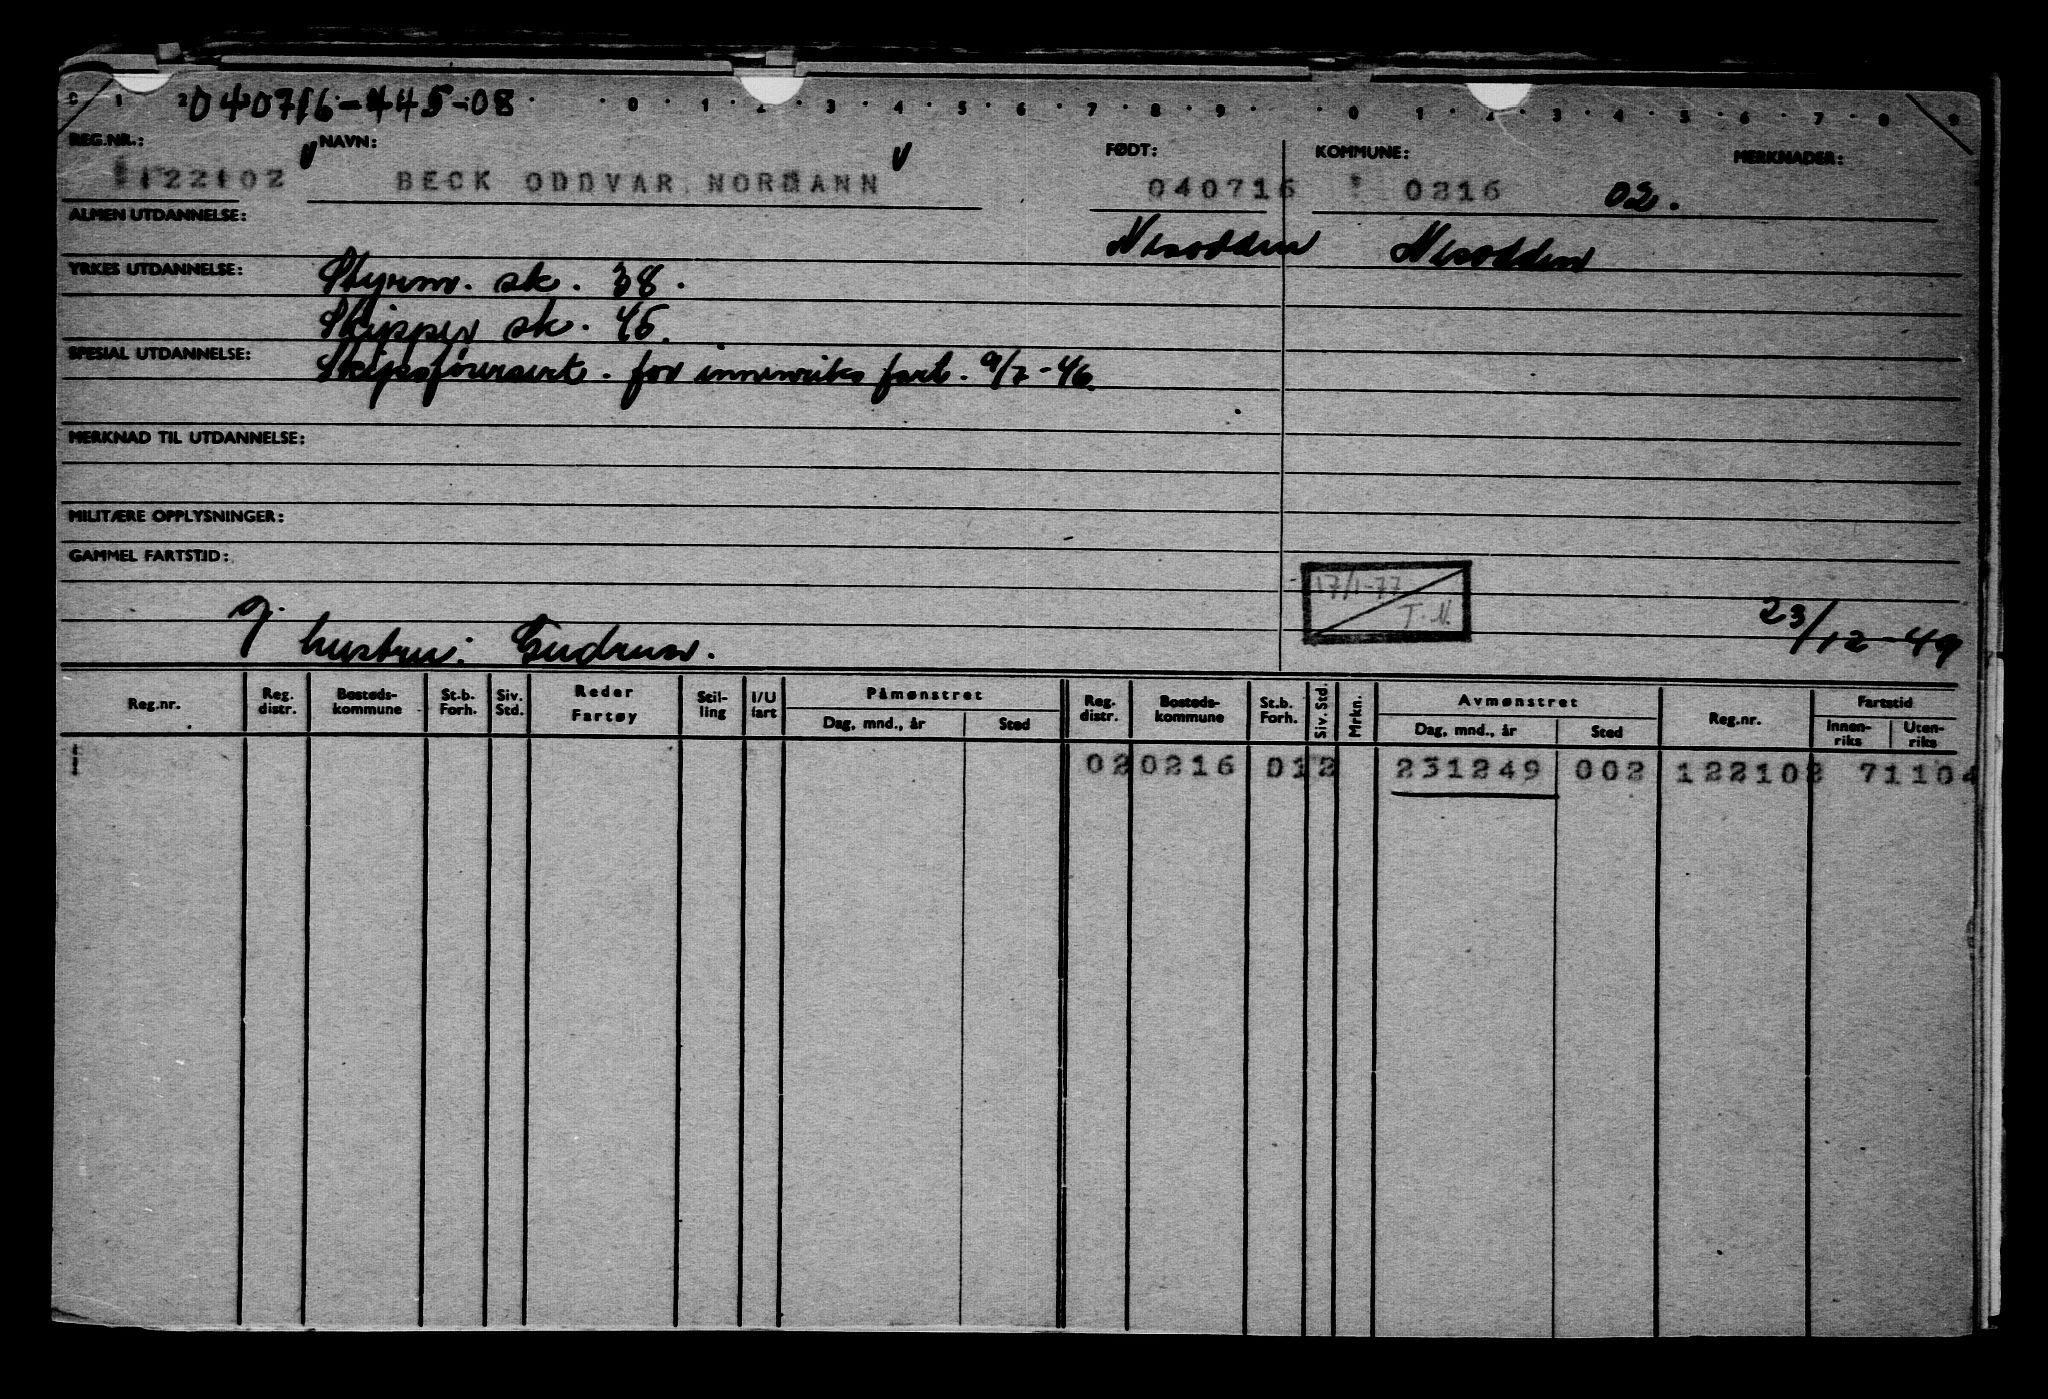 040716-445-08
C 1 2 0 1 2 3 4 5 6 7 8 9 0 1 2 3 4 5 6 7 8 9
REG.NR.: NAVN: FØDT: KOMMUNE: MERKNADER:
122102 BECK ODDVAR NORMANN 040716 0216 02.
ALMEN UTDANNELSE: Nesodden Nesodden
YRKES UTDANNELSE: Styrm. sk. 38.
Skipper sk. 45.
SPESIAL UTDANNELSE: Skipsførersert. for innenriks fart. 9/7-46.
MERKNAD TIL UTDANNELSE:
MILITÆRE OPPLYSNINGER:
GAMMEL FARTSTID:
17/1-77
T.N.
23/12-49
J. hustru: Gudrun.
Reg.nr. Reg. distr. Bosteds-kommune St.b. Forh. Siv. Std. Reder Fartøy Stil-ling I/U fart Påmønstret Dag, mnd., år Sted Reg. distr. Bosteds-kommune St.b. Forh. Siv. Std. Mrkn. Avmønstret Dag, mnd., år Sted Reg.nr. Fartstid Innen-riks Uten-riks
02 0216 012 231249 002 122102 71104